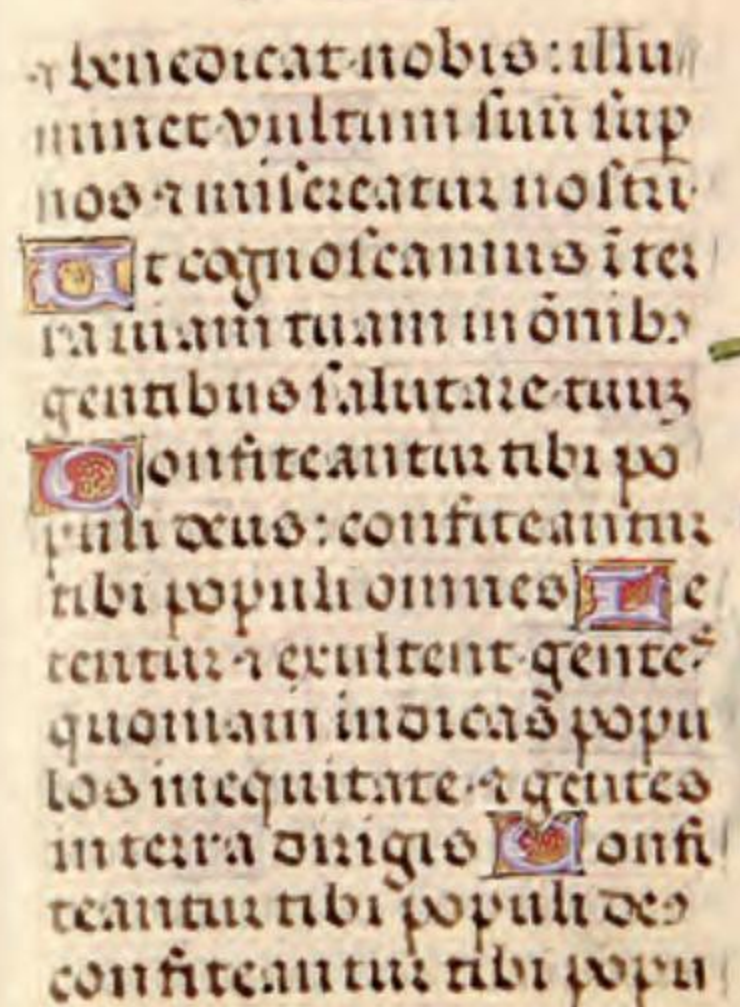 ⁊ benedicat nobis: illu
minet vultum suū sup
nos ⁊ misereatur nostri
Ut cognoscamus ī ter
ra uiam tuam in ōnibꝰ
gentibus salutare tuuꝫ
Confiteantur tibi po
puli deus: confiteantur
tibi populi omnes Le
tentur ⁊ exultent gentes
quoniam iudicas popu
los in equitate ⁊ gentes
in terra dirigis Confi
teantur tibi populi deꝰ
confiteantur tibi popu